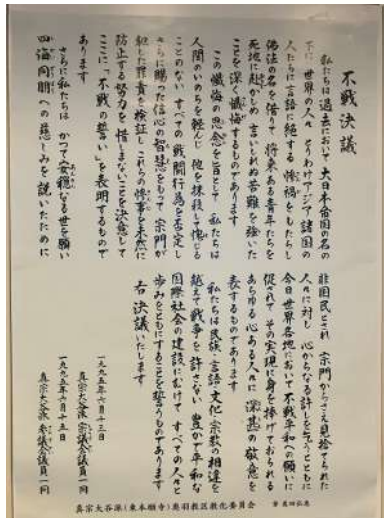 不戦決議
私たちは過去において 大日本帝国の名の
下に 世界の人々 とりわけアジア諸国の
人たちに 言語に絶する 惨禍をもたらし
佛法の名を借りて 将来ある青年たちを
死地に赴かしめ 言いしれぬ苦難を強いた
ことを 深く懺悔するものであります
この懺悔の思念を旨として 私たちは
人間のいのちを軽んじ 他を抹殺して愧じる
ことのない すべての戦闘行為を否定し
さらに賜った信心の智慧をもって 宗門が
犯した罪責を検証し これらの惨事を未然に
防止する努力を惜しまないことを決意して
ここに「不戦の誓い」を表明するもので
あります
さらに私たちは かつて安穏なる世を願い
四海同朋への慈しみを説いたために
非国民とされ 宗門からさえ見捨てられた
人々に対し 心からなる許しを乞うとともに
今日世界各地において不戦平和への願いに
促されて その実現に身を捧げておられる
あらゆる心ある人々に 深甚の敬意を
表するものであります
私たちは 民族・言語・文化・宗教の相違を
越えて 戦争を許さない 豊かで平和な
国際社会の建設にむけて すべての人々と
歩みをともにすることを誓うものであります
右 決議いたします
一九九五年六月十三日
真宗大谷派 宗議会議員一同
一九九五年六月十五日
真宗大谷派 参議会議員一同
真宗大谷派(東本願寺)奥羽教区教化委員会